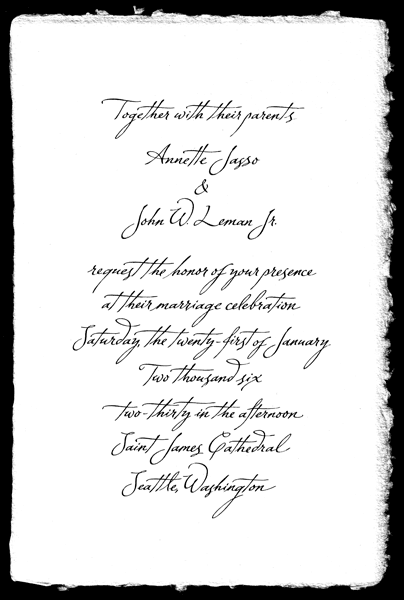 Together with their parents
Annette Sasso
&
John W. Leman Jr.
request the honor of your presence
at their marriage celebration
Saturday, the twenty-first of January
Two thousand six
two-thirty in the afternoon
Saint James Cathedral
Seattle, Washington